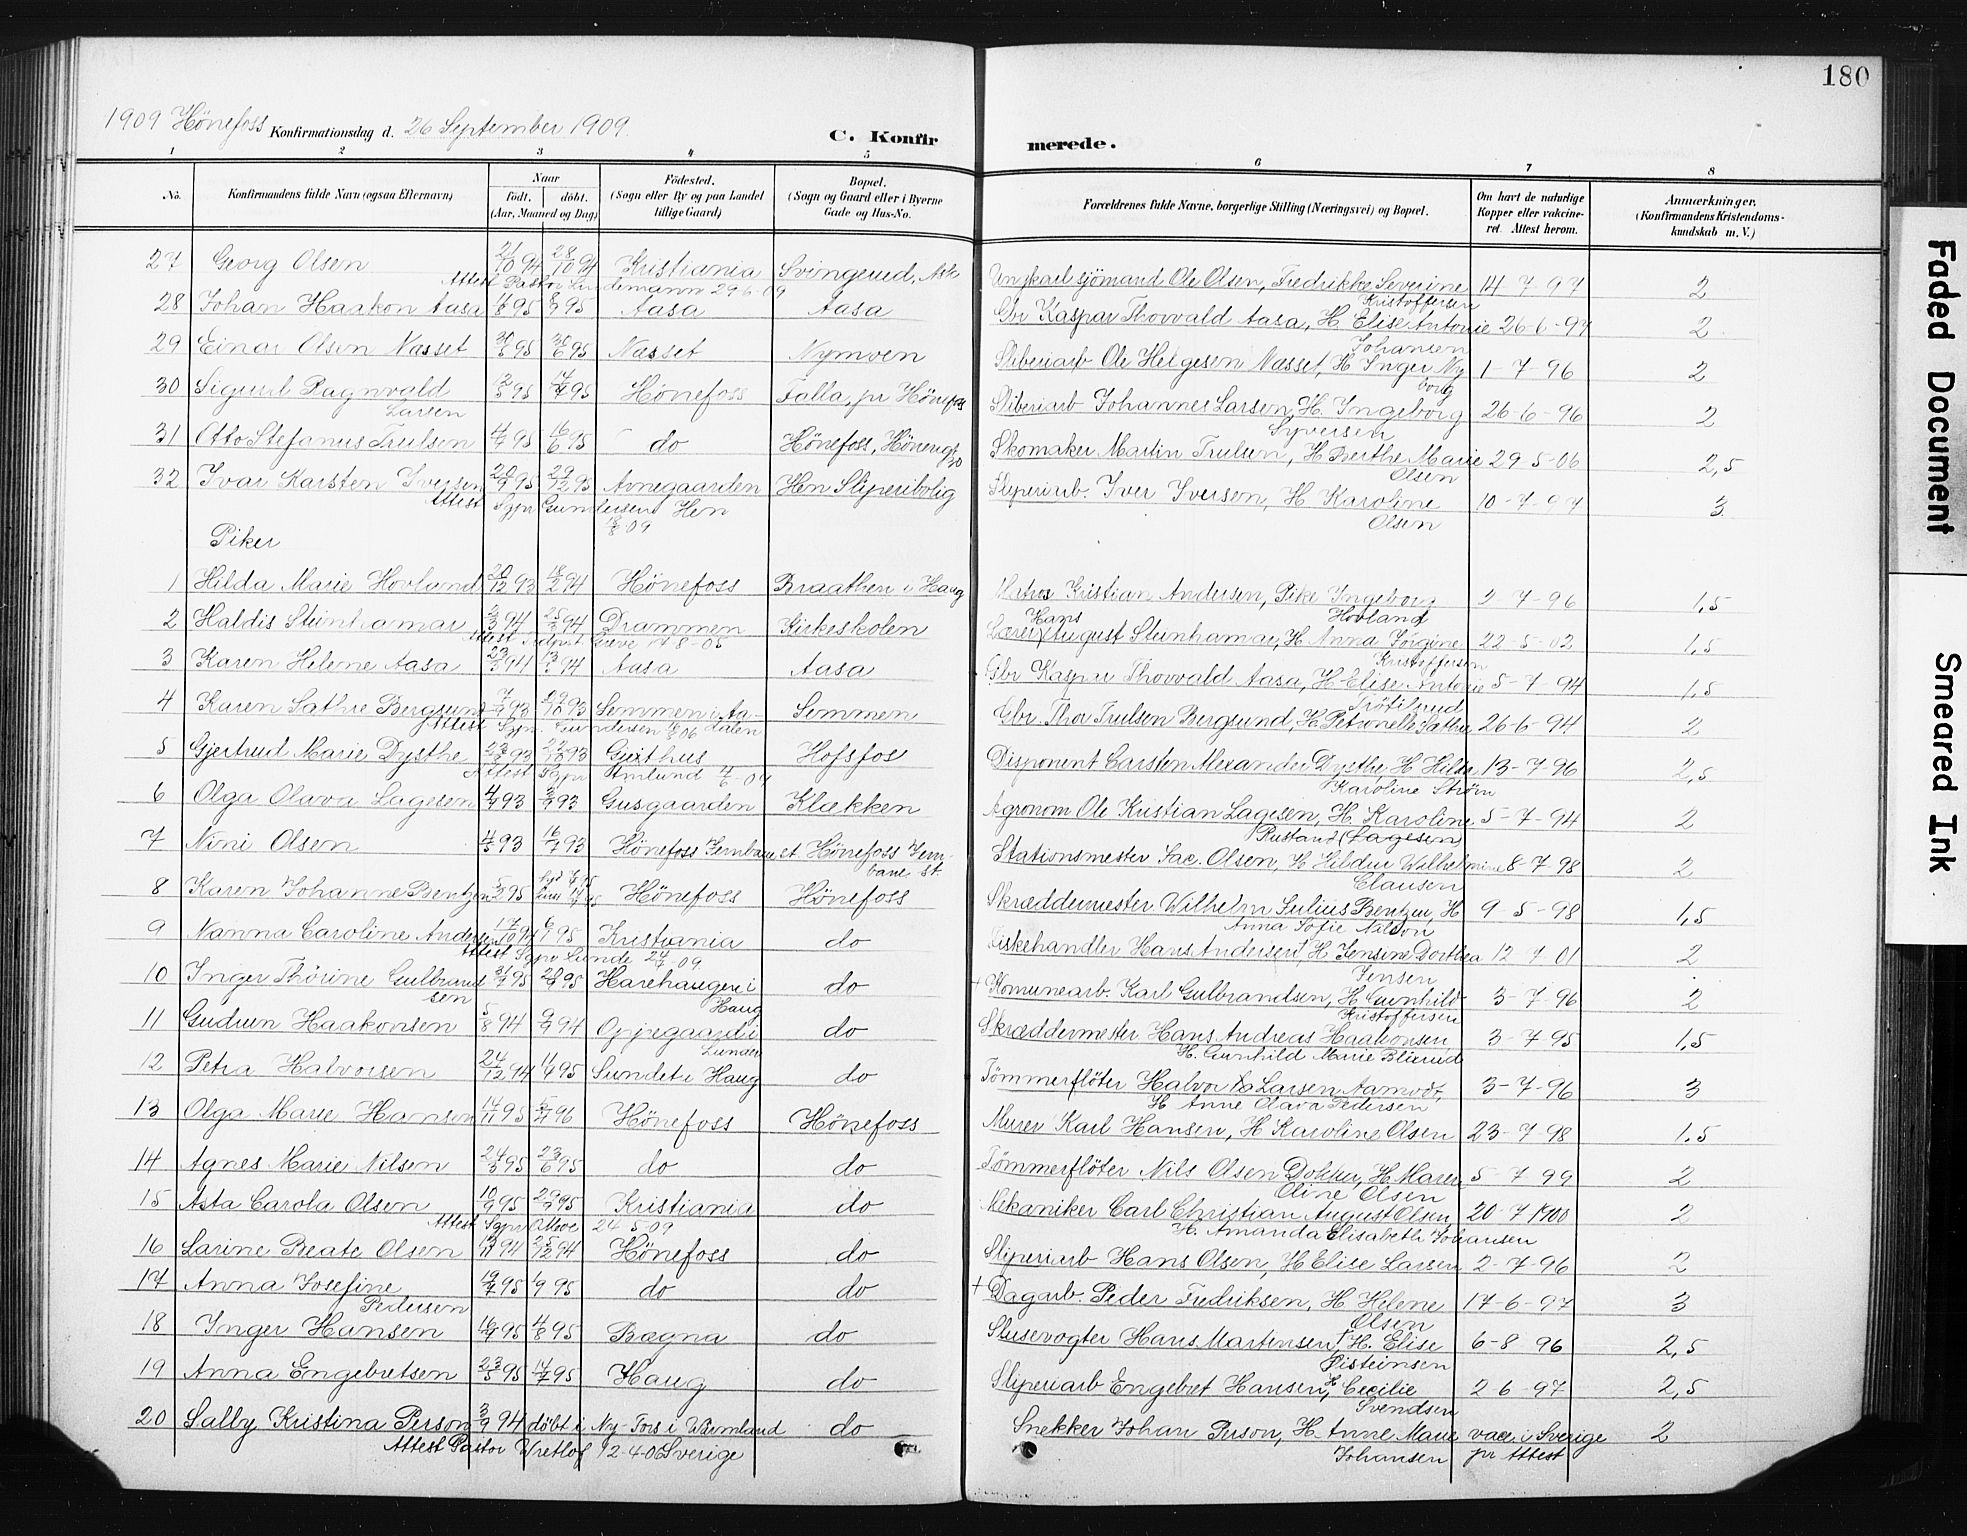 180
1909 Hönefoss Konfirmationsdag d. 26 September 1909. C. Konfir merede.
1 2 3 4 5 6 7 8
No. Konfirmandens fulde Navn (ogsaa Efternavn) Naar födt. döbt. (Aar, Maaned og Dag) Födested. (Sogn eller By og paa Landet tillige Gaard) Bopæl. (Sogn og Gaard eller i Byerne Gade og Hus-No. Forældrenes fulde Navne, borgerlige Stilling (Næringsvei) og Bopæl. Om havt de naturlige Kopper eller vakcineret. Attest herom. Anmærkninger. (Konfirmandens Kristendomskundskab m. V.)
27 Georg Olsen 21/10 94 28/10 94 Kristiania Svingerud, Ask Ungkarl sjömand Ole Olsen, Fredrikke Severine 14-7-97 2
Attest Pastor Lindemann 29 6-09 Kristoffersen
28 Johan Haakon Aasa 4/8 95 8/9 95 Aasa Aasa Gbr Kaspar Thorvald Aasa, H. Elise Antonie 26-6-97 2
Johansen
29 Einar Olsen Næsset 30/5 95 30/6 95 Næsset Nymoen Sliberiarb Ole Helgesen Næsset, H Inger Ny 1-7-96 2
borg
30 Sigurd Ragnvald 12/5 95 14/7 95 Hönefoss Falla, pr Hönefos Sliberiarb Johannes Larsen, H. Ingeborg 26-6-96 2
Larsen Syversen
31 Otto Stefanus Trulsen 4/5 95 16/6 95 do Hönefoss, Hönengt Skomaker Martin Trulsen, H Berthe Marie 29 5-06 2,5
Olsen
32 Ivar Karsten Iversen 20/9 95 29/12 95 Arnegaarden Hen Sliperibolig Sliperiarb. Iver Iversen, H Karoline 10-7-97 3
Attest Sgpr Gundersen Hen Olsen
09
Piker
1 Hilda Marie Hovland 20/12 93 18/2 94 Hönefoss Braathen i Haug Matros Kristian Andersen, Pike Ingeborg 2-7-96 1,5
Hovland
2 Haldis Steinhamar 2/3 94 25/3 94 Drammen Kirkeskolen Lærer Hans August Steinhamar, H. Anna Jörgine 22-5-02 1,5
Kristoffersen
3 Karen Helene Aasa 23/3 94 13/5 94 Aasa Aasa Gbr Kaspar Thorvald Aasa, H Elise Antonie 5-7-94 1,5
4 Karen Sathre Bergsund 93 93 Semmen i Aa- Semmen Gbr. Thor Trulsen Bergsund, H Petronelle Sathre 26-6-94 2
Attest Sgpr. Gundersen 06 dalen
5 Gjertrud Marie Dysthe 93 93 Gjethus Hofsfos Disponent Carsten Alexander Dysthe, H Hilda 13-7-96 2,5
Attest Sgpr Amlund Karoline Ström
6 Olga Olava Lagesen 93 93 Gusgaarden Klækken Agronom Ole Kristian Lagesen, H. Karoline 5-7-94 2
Rustand (Lagesen)
7 Nini Olsen 4/5 93 16/7 93 Hönefoss Jernbane st. Hönefoss Jern- Stationsmester Jac. Olsen, H Hildur Wilhelmine 8-7-98 2
bane st. Clausen
8 Karen Johanne Bentzen 5/3 95 Hönefoss Hönefoss Skræddermester Wilhelm Julius Bentzen, H 9-5-98 1,5
Anna Sofie Nilson
9 Nanna Caroline Andersen 17/10 94 6/1 95 Kristiania do Fiskehandler Hans Andersen, H Jensine Dorthea 12 7 01 2
Attest Sgpr Lunde 24 09. Jensen
10 Inger Thörine Gulbrand 95 95 Harehaugen i do + Komunearb. Karl Gulbrandsen, H Gunhild 3-7-96 2
sen Haug Kristoffersen
11 Gudrun Haakonsen 5/8 94 9/9 94 Oppegaard i do Skræddermester Hans Andreas Haakonsen 3-7-95 1,5
Lunder H. Gunhild Marie Blierud
12 Petra Halvorsen 24/12 94 95 Sundet i Haug do Tömmerflöter Halvor Larsen Aamodt, 3-7-96 3
H Anne Olava Pedersen
13 Olga Marie Hansen 14/11 95 96 Hönefoss Hönefoss Murer Karl Hansen, H Karoline Olsen 23-7-98 1,5
14 Agnes Marie Nilsen 24/3 95 23/6 95 do do Tömmerflöter Nils Olsen Dokken, H. Maren 5-7-99 2
Oline Olsen
15 Asta Carola Olsen 10/9 95 29/9 95 Kristiania do Mekaniker Carl Christian August Olsen 20-7 1900 2
Attest Sgpr 24 5-09 H. Amanda Elisabeth Johansen
16 Larine Beate Olsen 94 25/12 94 Hönefoss do Sliperiarb Hans Olsen, H Elise Larsen 2-7-96 2
17 Anna Josefine 95 95 do do + Dagarb. Peder Fredriksen, H Helene 17-6-97 3
Pedersen Olsen
18 Inger Hansen 95 4/8 95 Bægna do Slusevogter Hans Martensen, H. Elise 6-8 96 2,5
Eisteinsen
19 Anna Engebretsen 23/5 95 14/7 95 Haug do Sliperiarb Engebret Hansen, H Cecilie 2-6-97 2,5
Svendsen
20 Salby Kristina Person 3/9 94 döbt i Ny-Fors i Wärmland do Snekker Johan Person, H. Anne Marie vacc. i Sverige 2
Attest Pastor Uretlof 12-4-06 Sverige Johansen pr Attest
Faded Document
Smeared Ink